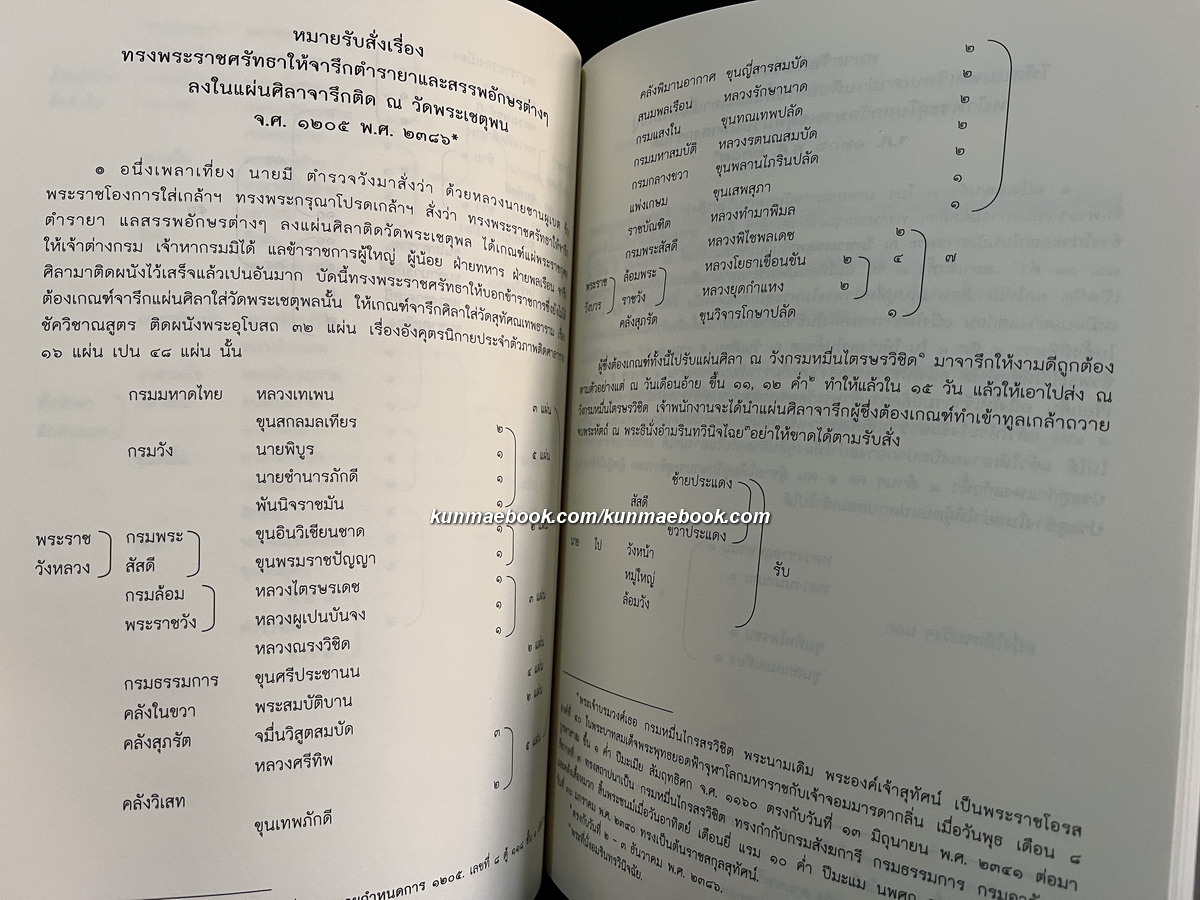 หมายรับสั่งเรื่อง
ทรงพระราชศรัทธาให้จารึกตำรายาและสรรพอักษรต่างๆ
ลงในแผ่นศิลาจารึกติด ณ วัดพระเชตุพน
จ.ศ. ๑๒๐๕ พ.ศ. ๒๓๘๖*
๏ อนึ่งเพลาเที่ยง นายมี ตำรวจวังมาสั่งว่า ด้วยหลวงนายชานภูเบต รับ
พระราชโองการใส่เกล้าฯ ทรงพระกรุณาโปรดเกล้าฯ สั่งว่า ทรงพระราชศรัทธาให้จาฤก
ตำรายา แลสรรพอักษรต่างๆ ลงแผ่นศิลาติดวัดพระเชตุพล ได้เกณฑ์แผ่พระราชกุศล
ให้เจ้าต่างกรม เจ้าหากรมมิได้ แลข้าราชการผู้ใหญ่ ผู้น้อย ฝ่ายทหาร ฝ่ายพลเรือน
ศิลามาติดผนังไว้เสร็จแล้วเปนอันมาก บัดนี้ทรงพระราชศรัทธาให้บอกข้าราชการซึ่งยังไม่ได้
ต้องเกณฑ์จาฤกแผ่นศิลาใส่วัดพระเชตุพลนั้น ให้เกณฑ์จาฤกศิลาใส่วัดสุทัศณเทพธาราม เรื่อง
ชัควิชาณสูตร ติดผนังพระอุโบสถ ๓๒ แผ่น เรื่องอังคุตรนิกายประจำตัวภาพติดศาลาราย
๑๖ แผ่น เปน ๔๘ แผ่น นั้น
กรมมหาดไทย หลวงเทเพน
ขุนสกลมลเทียร ๒ ๓ แผ่น
กรมวัง นายพิบูร ๑ ๕ แผ่น
นายชำนารภักดี ๑
พันนิจราชมัน ๑
พระราช กรมพระ ขุนอินวิเชียนชาด ๑ ๒ แผ่น
วังหลวง สัสดี ขุนพรมราชปัญญา ๑
กรมล้อม หลวงไตรษรเดช ๑ ๓ แผ่น
พระราชวัง หลวงผูเปนบันจง ๑
หลวงณรงวิชิด ๑ ๒ แผ่น
กรมธรรมการ ขุนศรีประชานน ๔ แผ่น
คลังในขวา พระสมบัติบาน ๒ แผ่น
คลังสุภรัต จมื่นวิสูตสมบัด ๓ ๕ แผ่น
หลวงศรีทิพ
คลังวิเสท ขุนเทพภักดี ๒
กำหนดการ ๑๒๐๕. เลขที่ ๘ ตู้ ๑๑๘
คลังพิมานอากาศ ขุนญี่สารสมบัด ๒
สนมพลเรือน หลวงรักษานาด ๒
กรมแสงใน ขุนทณเทพปลัด ๒
กรมมหาสมบัติ หลวงรตนณสมบัด ๒
กรมกลางขวา ขุนพลานไภรินปลัด ๒
แพ่งเกษม ขุนเสพสุภา ๑
ราชบัณฑิต หลวงทำมาพิมล ๑
กรมพระสัสดี หลวงพิไชพลเดช ๒
พระราช ล้อมพระ หลวงโยธาเขื่อนขัน ๒ ๔ ๗
วังบวร ราชวัง หลวงยุดกำแหง ๒
คลังสุภรัต ขุนวิจารโกษาปลัด ๑
ผู้ซึ่งต้องเกณฑ์ทั้งนี้ไปรับแผ่นศิลา ณ วังกรมหมื่นไตรษรวิชิด๑ มาจารึกให้งามดีถูกต้อง
ตามตัวอย่างแต่ ณ วันเดือนอ้าย ขึ้น ๑๑, ๑๒ ค่ำ๒ ทำให้แล้วใน ๑๕ วัน แล้วให้เอาไปส่ง ณ
วังกรมหมื่นไตรษรวิชิด เจ้าพนักงานจะได้นำแผ่นศิลาจารึกผู้ซึ่งต้องเกณฑ์ทำเข้าทูลเกล้าถวาย
ณ พระธินั่งอำมรินทวินิจไฉย๓อย่าให้ขาดได้ตามรับสั่ง
ซ้ายประแดง
สัสดี
ขวาประแดง
นาย ไป วังหน้า รับ
หมู่ใหญ่
ล้อมวัง
๑พระเจ้าบรมวงศ์เธอ กรมหมื่นไกรสรวิชิต พระนามเดิม พระองค์เจ้าสุทัศน์ เป็นพระราชโอรส
องค์ที่ ๔๐ ในพระบาทสมเด็จพระพุทธยอดฟ้าจุฬาโลกมหาราชกับเจ้าจอมมารดากลิ่น เมื่อวันพุธ เดือน ๘
ขึ้น ๑ ค่ำ ปีมะเมีย สัมฤทธิศก จ.ศ. ๑๑๖๐ ตรงกับวันที่ ๑๓ มิถุนายน พ.ศ. ๒๓๔๑ ต่อมา
รัชกาลที่ ๓ ทรงสถาปนาเป็น กรมหมื่นไกรสรวิชิต ทรงกำกับกรมสังฆการี กรมธรรมการ
สิ้นพระชนม์เมื่อวันอาทิตย์ เดือนยี่ แรม ๑๐ ค่ำ ปีมะแม นพศก
มกราคม พ.ศ. ๒๓๙๐ ทรงเป็นต้นราชสกุลสุทัศน์.
๒ตรงกับวันที่ ๒ - ๓ ธันวาคม พ.ศ. ๒๓๘๖.
๓พระที่นั่งอมรินทรวินิจฉัย.
kunmaebook.com/kunmaebook.com